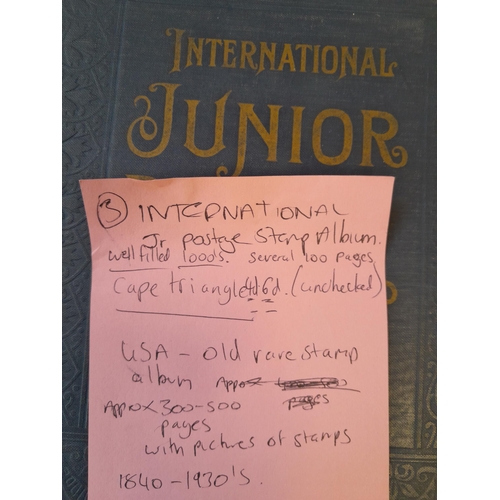 INTERNATIONAL
JUNIOR
③ INTERNATIONAL
Jr. postge Stamp Album.
well filled 1000's. several 100 pages
Cape triangle 4d 6d. (unchecked)
USA - old rare stamp
album Approx
Approx 300-500 pages
pages
with pictures of stamps
1840 - 1930's.